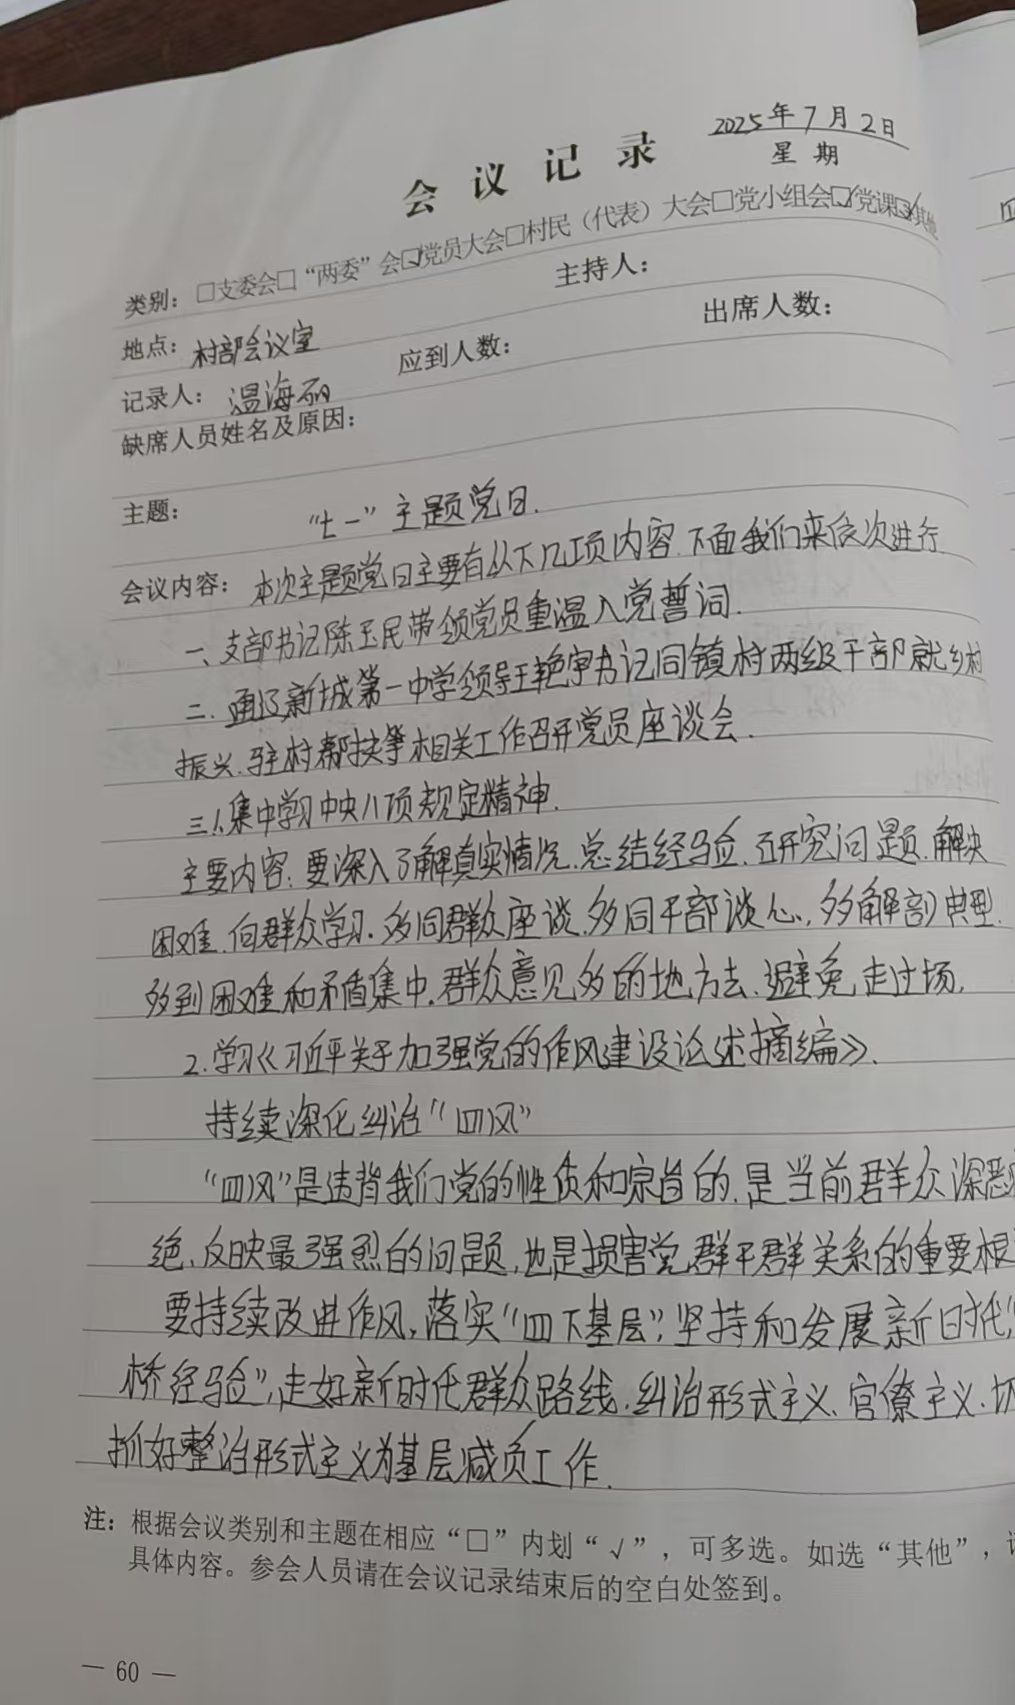 2025年7月2日
会议记录
星期
类别：□支委会□“两委”会☑党员大会□村民（代表）大会□党小组会☑党课☑其他
主持人：
地点：村部会议室
出席人数：
应到人数：
记录人：温海丽
缺席人员姓名及原因：
主题：“七一”主题党日.
会议内容：本次主题党日主要有从下几项内容.下面我们来依次进行
一、支部书记陈玉民带领党员重温入党誓词.
二.通辽新城第一中学领导王艳宇书记同镇村两级干部就乡村
振兴.驻村帮扶等相关工作召开党员座谈会.
三1.集中学习中央八项规定精神.
主要内容:要深入了解真实情况.总结经验.研究问题.解决
困难.向群众学习.多同群众座谈.多同干部谈心,多解剖典型.
多到困难和矛盾集中.群众意见多的地方去.避免走过场.
2.学习《习近平关于加强党的作风建设论述摘编》.
持续深化纠治“四风”
“四风”是违背我们党的性质和宗旨的.是当前群众深恶
绝、反映最强烈的问题,也是损害党群干群关系的重要根
要持续改进作风,落实“四下基层”,坚持和发展新时代“
桥经验”,走好新时代群众路线.纠治形式主义、官僚主义.切
抓好整治形式主义为基层减负工作.
注：根据会议类别和主题在相应“□”内划“√”，可多选。如选“其他”，
具体内容。参会人员请在会议记录结束后的空白处签到。
— 60 —